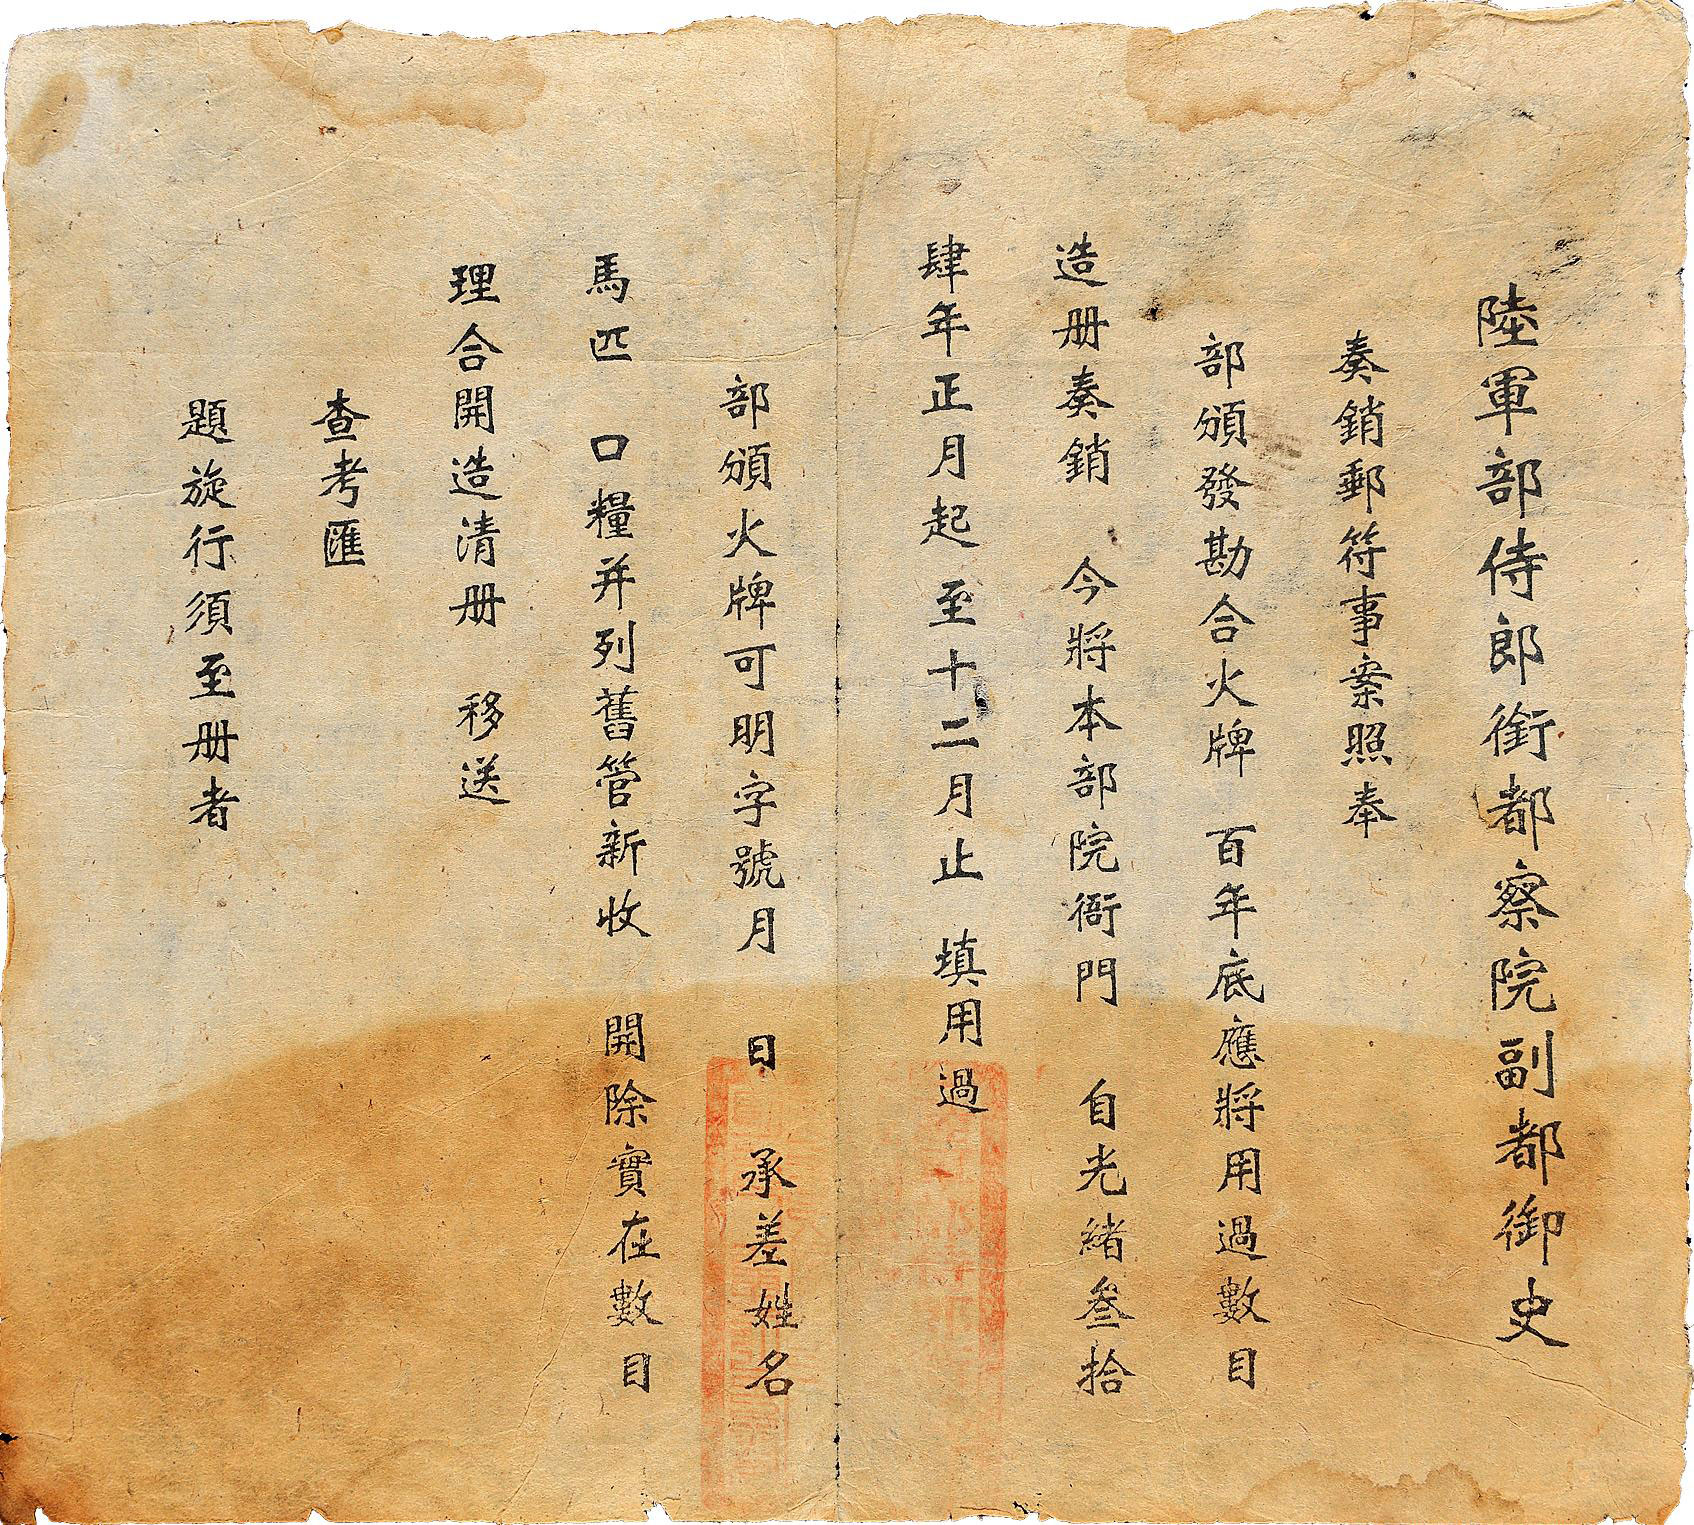 陸軍部侍郎銜都察院副都御史
奏銷郵符事案照奉
部頒發勘合火牌 百年底應將用過數目
造册奏銷 今將本部院衙門 自光緒叄拾
肆年正月起至十二月止 填用過
部頒火牌可明字號月 日 承差姓名
馬匹 口糧并列舊管新收 開除實在數目
理合開造清册 移送
查考匯
題旋行須至册者